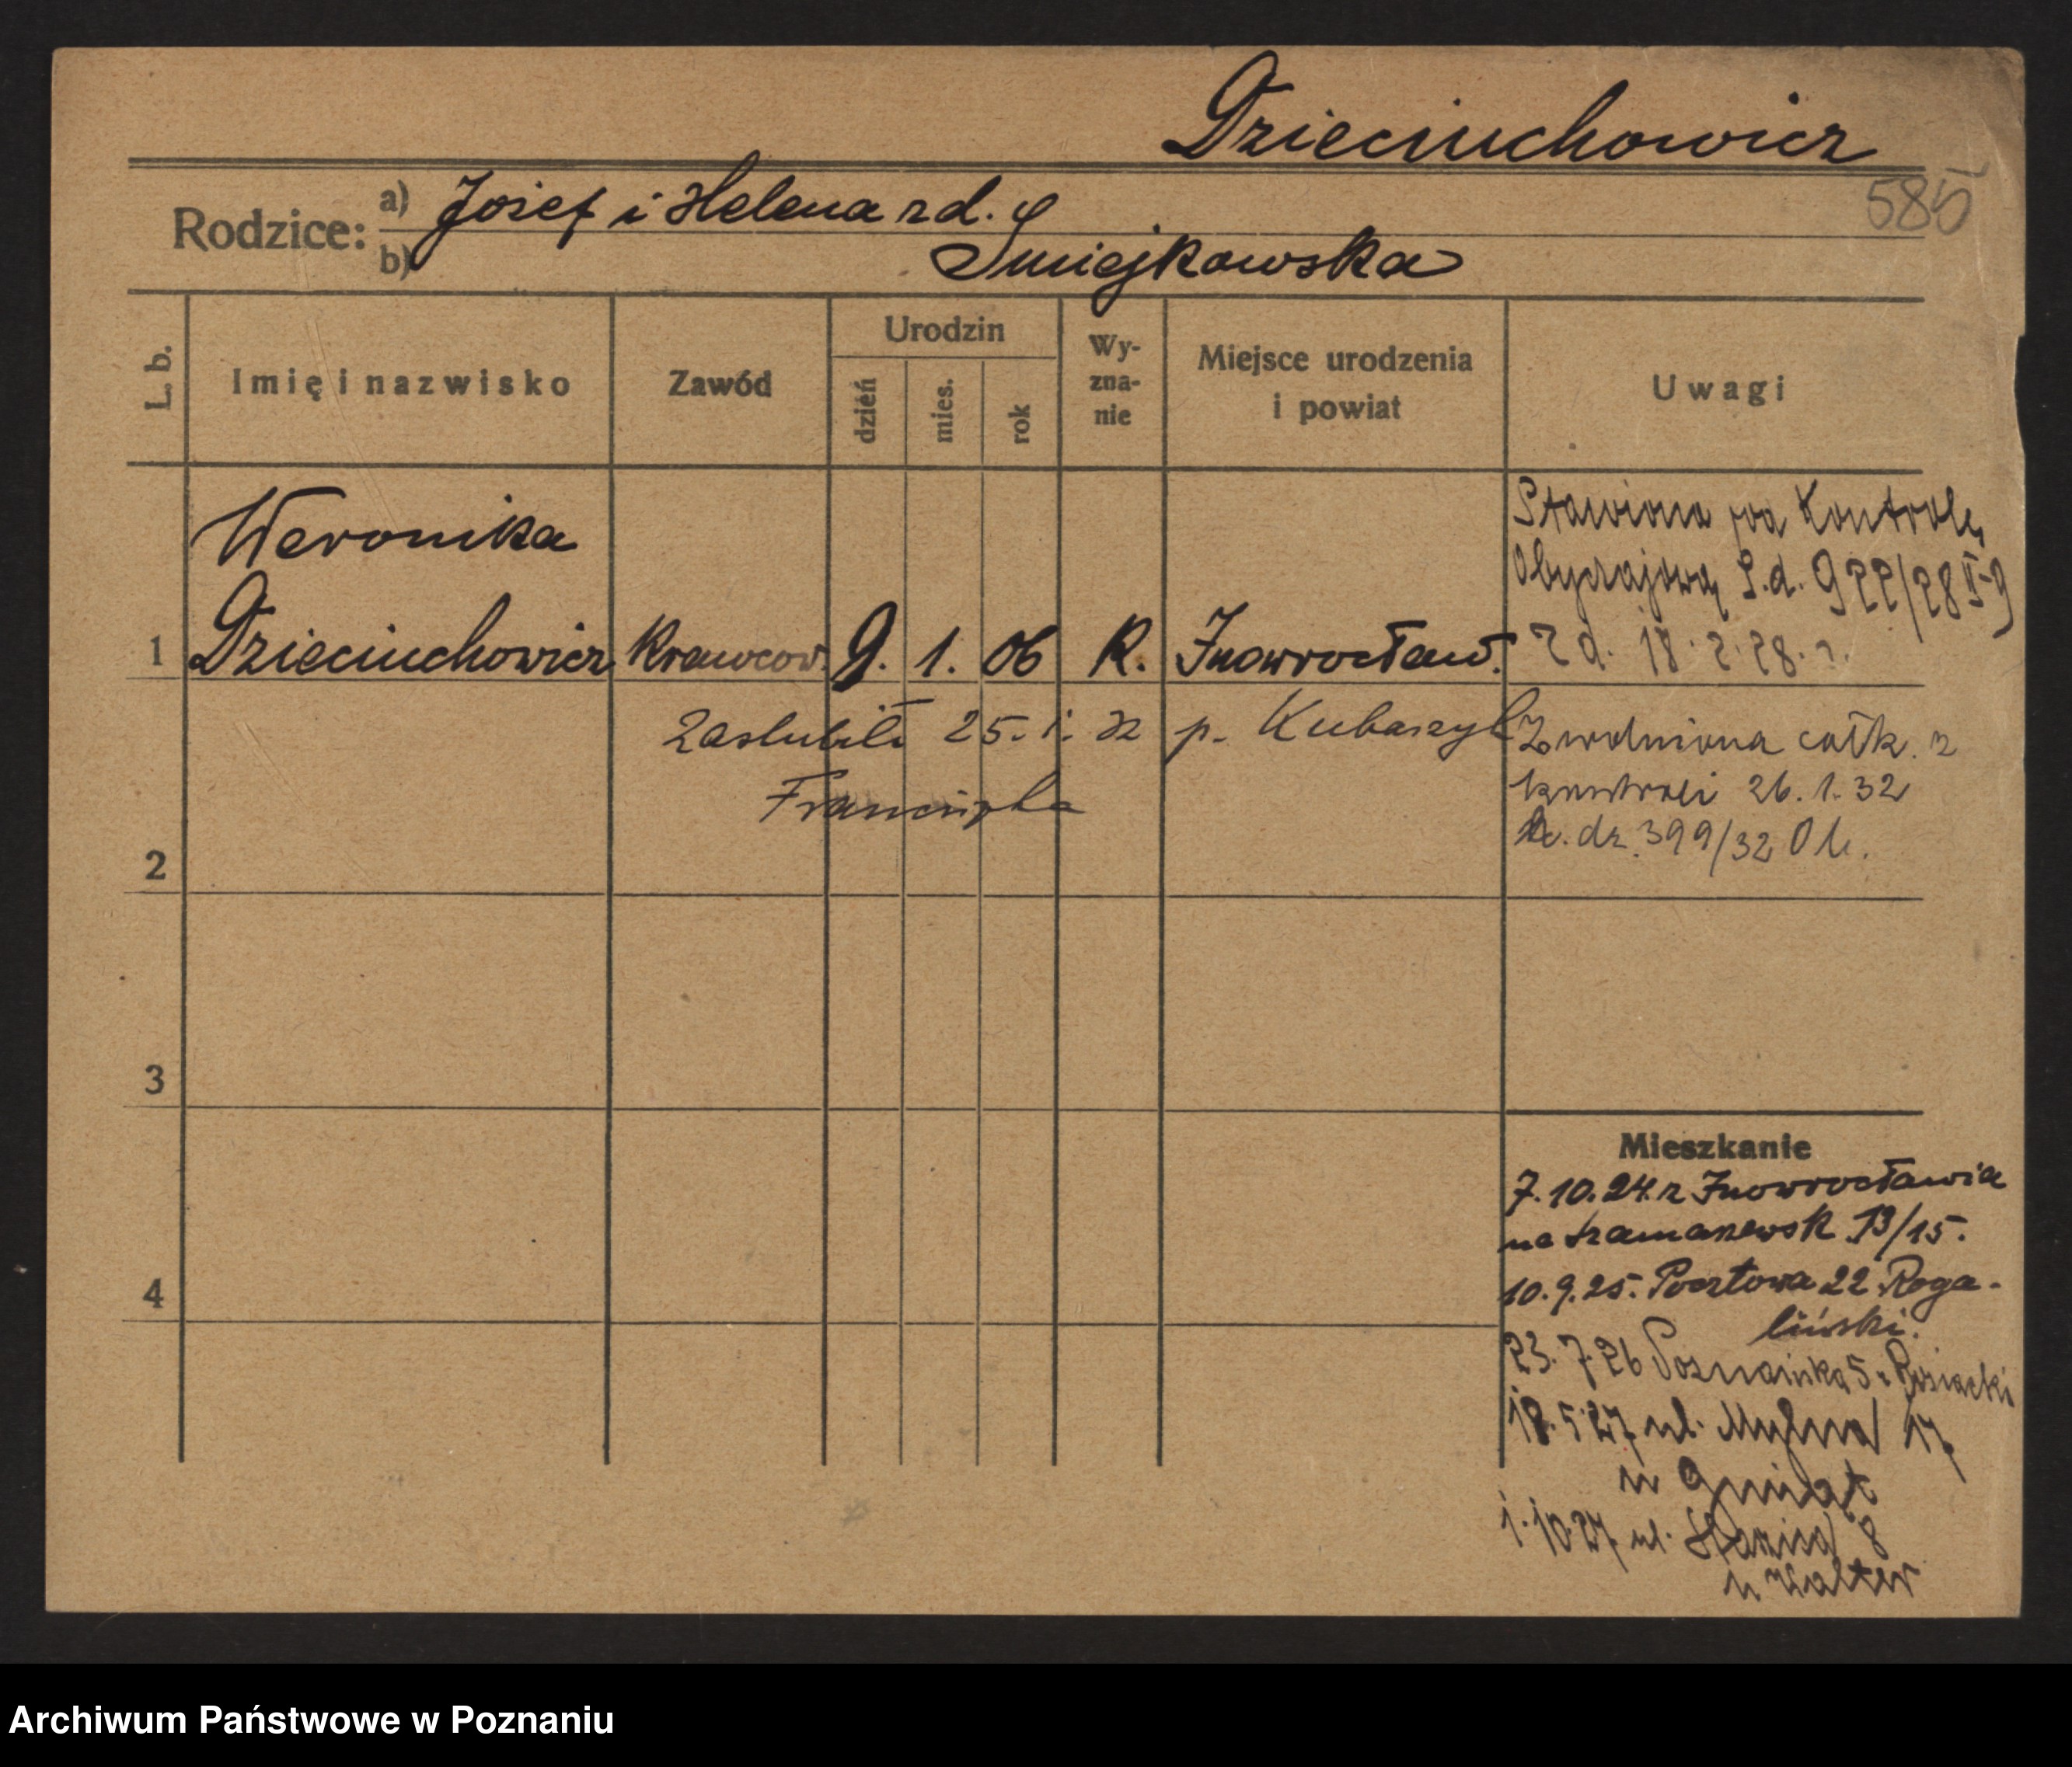 Dzieciuchowicz
585
Rodzice: a) Josef i Helena zd.
b) Smiejkowska
L. b.
Imię i nazwisko
Zawód
Urodzin
dzień
mies.
rok
Wy-
zna-
nie
Miejsce urodzenia
i powiat
Uwagi
Weronika
1 Dzieciuchowicz Krawcow. 9. 1. 06 K. Inowrocław.
Stawiona pod Kontrolę
Obyczajową L.d. 922/28
z d. 18.2.28. r.
zaślubiła 25. 1. 32 p. Kubaszyk
Franciszka
Zwolniona całk. z
kontroli 26.1.32
dz. 399/32
2
3
4
Mieszkanie
7.10.24. z Inowrocławia
na Szamarzewsk 13/15.
10.9.25. Pocztowa 22 Roga-
liński.
23.7.26 Poznańska 5 Rosiacki
18.5.27 ul. Mylna 17
u Gmiat
1.10.27 ul. 8
u Walter
Archiwum Państwowe w Poznaniu